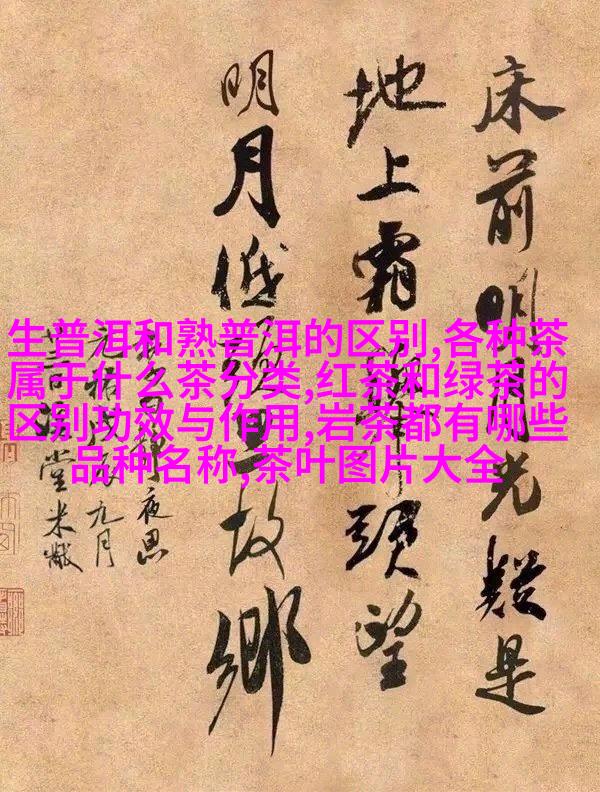 生普洱和熟普洱的区别,各种茶
属于什么茶分类,红茶和绿茶的
区别功效与作用,岩茶都有哪些
品种名称,茶叶图片大全
床前明月光疑是
地上霜舉頭望
明月低頭思故鄉
夜思
九月
堂米黻